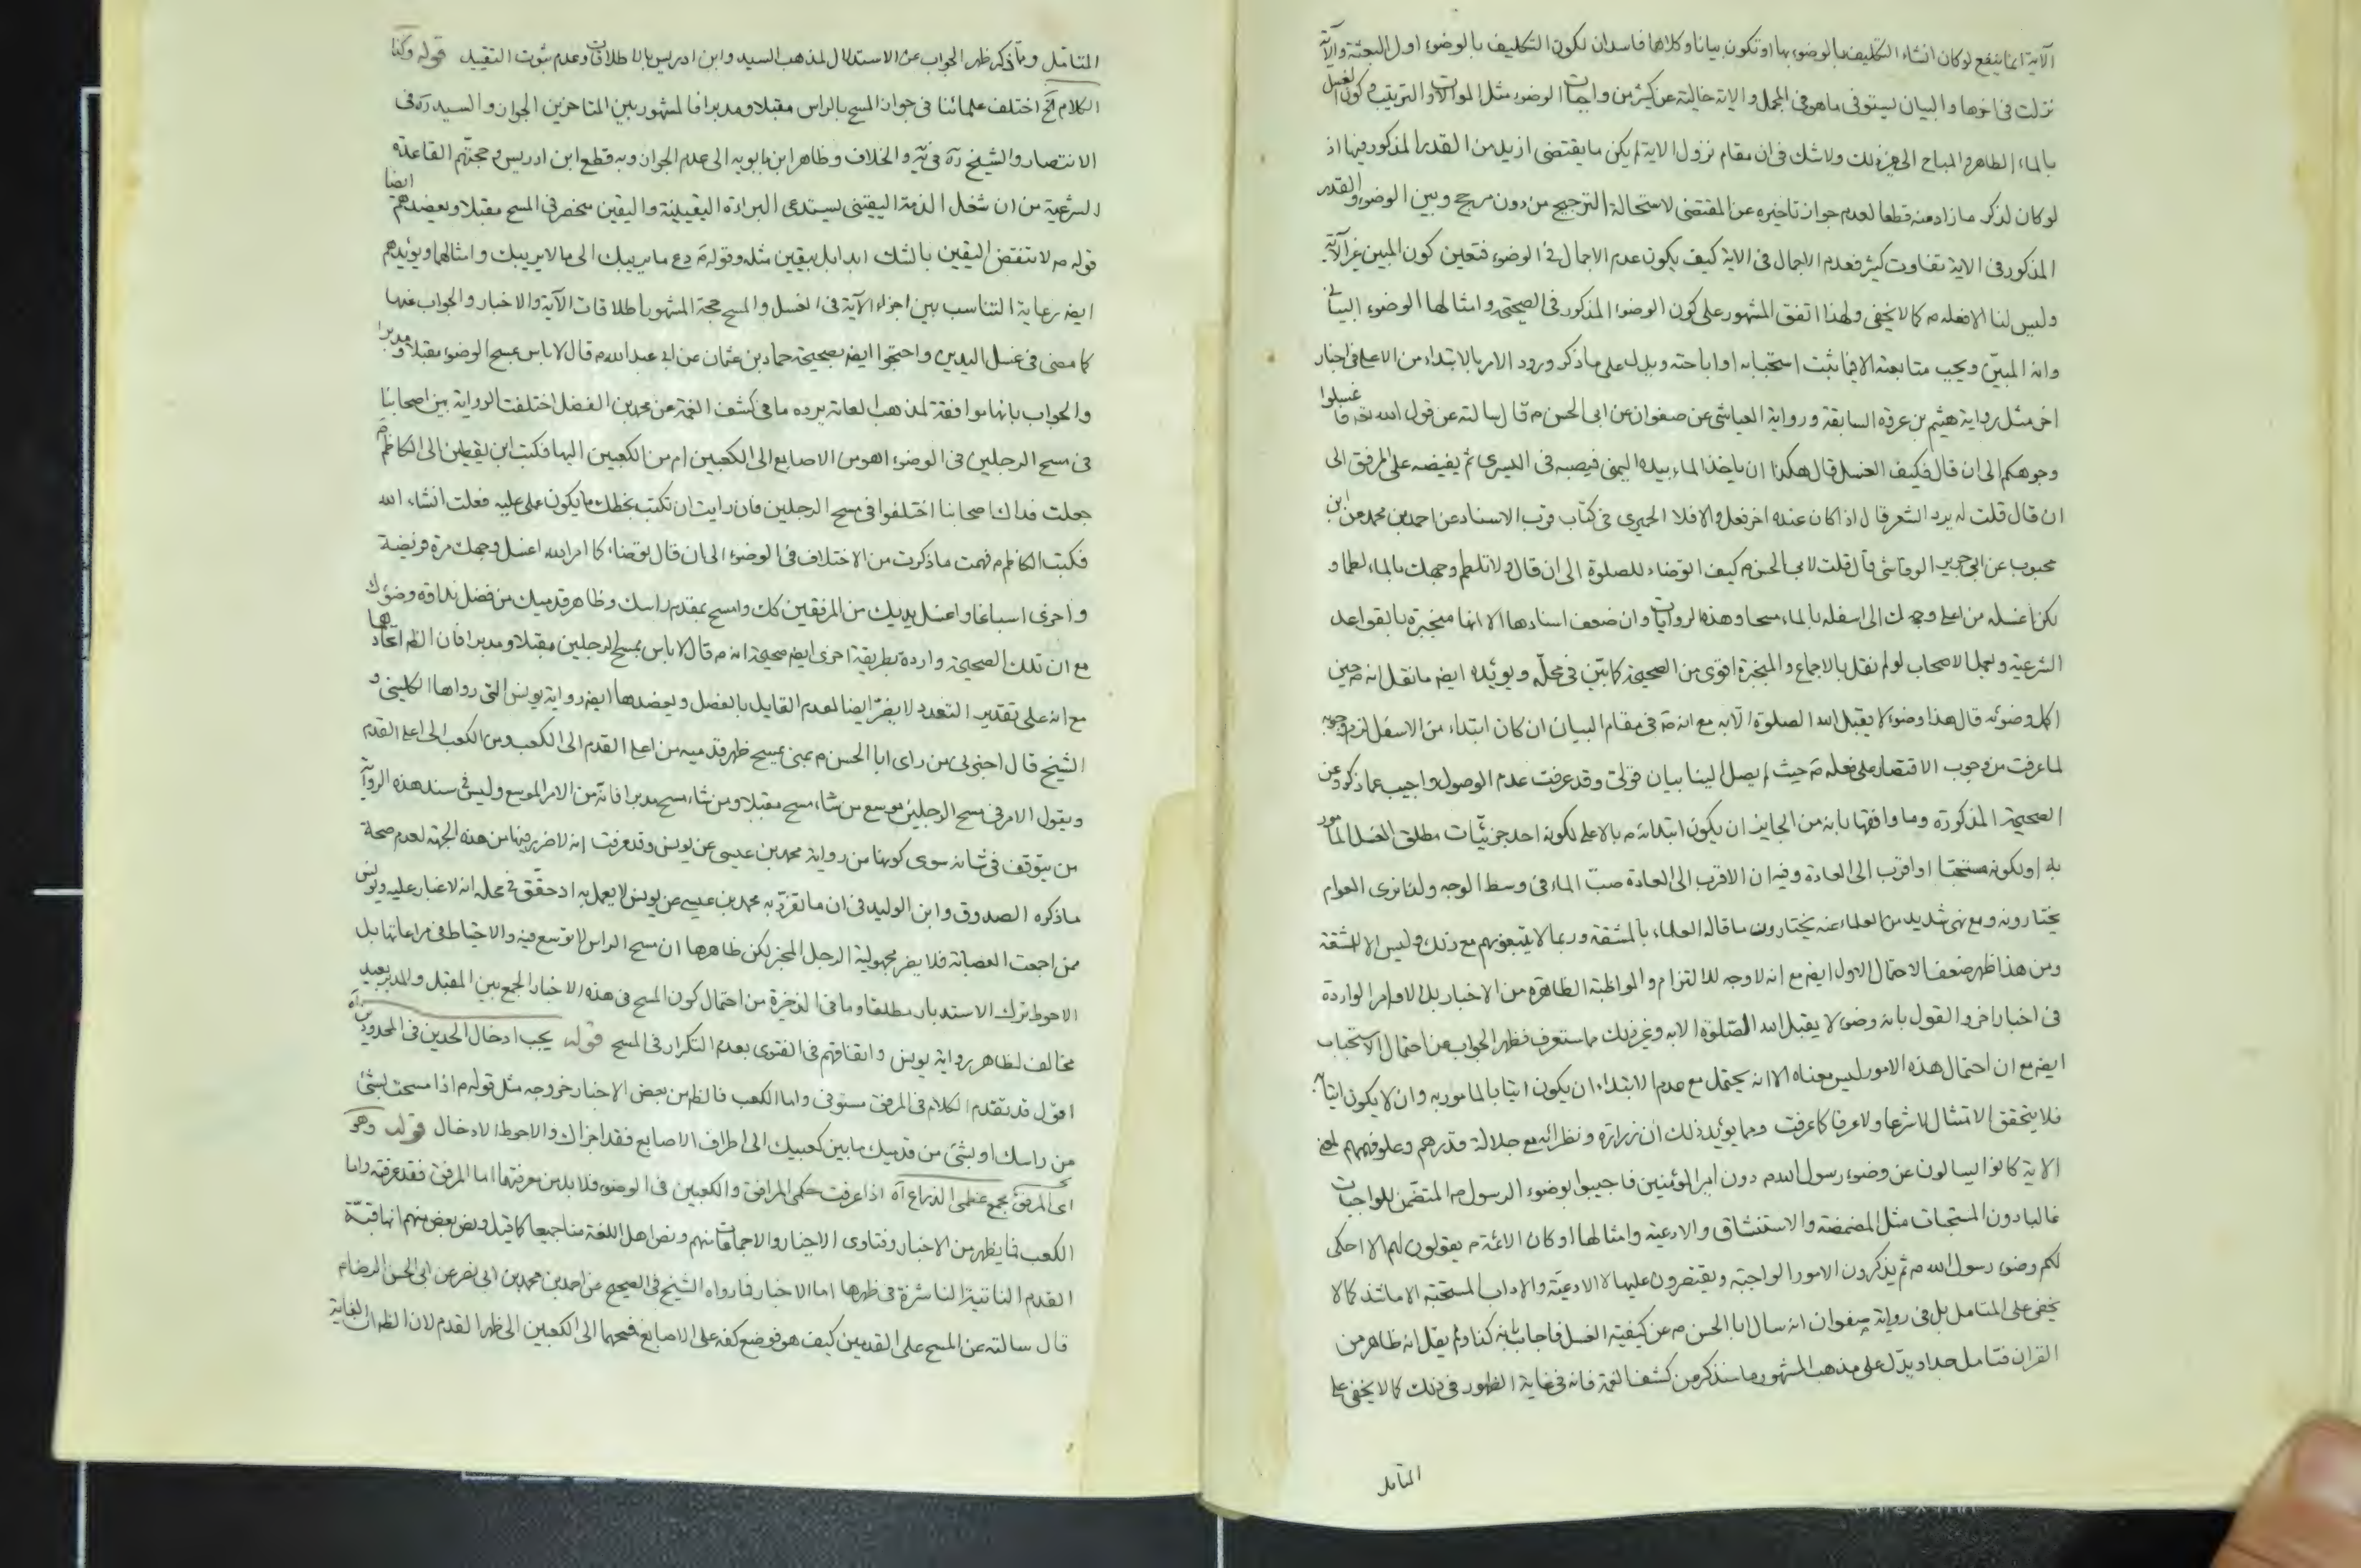 الآية انما ينفع لو كان انشاء التكليف بالوضوء بها او تكون بيانا وكلاهما فاسدان لكون التكليف بالوضوء اول البعثة والآية
نزلت في اخرها والبيان يستوفى ما هو في المجمل والاية خالية عن كثير من واجبات الوضوء مثل الموالات والترتيب وكون الغسل
بالماء الطاهر والمباح الى غير ذلك ولا شك في ان مقام نزول الاية لم يكن ما يقتضى ازيد من القدر المذكور فيها اذ
لو كان لذكر ما زاد منه قطعا لعدم جواز تاخيره عن المقتضى لاستحالة الترجيح من دون مرجح وبين الوضوء والقدر
المذكور في الاية تفاوت كثير فعدم الاجمال في الاية كيف يكون عدم الاجمال في الوضوء فتعين كون المبين غير الآية
وليس لنا الا فعله م كما لا يخفى ولهذا اتفق المشهور على كون الوضوء المذكور في الصحيحة وامثالها الوضوء البياني
وانه المبيّن ويجب متابعته الا فيما ثبت استحبابه او اباحته ويدل على ما ذكر ورود الامر بالابتداء من الاعلى في اخبار
اخر مثل رواية هيثم بن عرفة السابقة ورواية العياشى عن صفوان عن ابى الحسن م قال سالته عن قول الله تع فاغسلوا
وجوهكم الى ان قال فكيف الغسل قال هكذا ان ياخذ الماء بيده اليمنى فيصبه في اليسرى ثم يفيضه على المرفق الى
ان قال قلت له يرد الشعر قال اذا كان عنده اخر فعل والا فلا الحميرى في كتاب قرب الاسناد عن احمد بن محمد عن ابن
محبوب عن ابى جرير الرقاشى قال قلت لابى الحسن م كيف اتوضاء للصلوة الى ان قال ولا تلطم وجهك بالماء لطما و
لكن اغسله من اعلى وجهك الى اسفله بالماء مسحا وهذه الروايات وان ضعف اسنادها الا انها منجبرة بالقواعد
الشرعية وبعمل الاصحاب لو لم نقل بالاجماع والمنجبرة اقوى من الصحيحة كما بيّن في محلّه ويؤيّده ايضا ما نقل انه ص حين
اكمل وضوئه قال هذا وضوء لا يقبل الله الصلوة الا به مع انه ص في مقام البيان ان كان ابتداء من الاسفل لزم وجوبه
لما عرفت من وجوب الاقتصار على فعله ص حيث لم يصل الينا بيان قولى وقد عرفت عدم الوصول واجيب عما ذكر وعن
الصحيحة المذكورة وما وافقها بانه من الجايز ان يكون ابتدائه م بالاعلى لكونه احد جزئيّات مطلق الغسل المامور
به او لكونه مستحبا او اقرب الى العادة وفيه ان الاقرب الى العادة صبّ الماء في وسط الوجه ولذا نرى العوام
يختارونه ومع نهى شديد من العلماء عنه يختارون ما قاله العلماء بالمشقة وربما لا يتبعونهم مع ذلك وليس الا للمشقة
ومن هذا ظهر ضعف الاحتمال الاول ايضا مع انه لا وجه للالتزام والمواظبة الظاهرة من الاخبار بل الاوامر الواردة
في اخبار اخر والقول بانه وضوء لا يقبل الله الصّلوة الا به وغير ذلك مما ستعرف فظهر الجواب عن احتمال الاستحباب
ايضا مع ان احتمال هذه الامور ليس معناه الا انه يحتمل مع عدم الابتداء ان يكون اتيا بالمامور به وان لا يكون اتيا به
فلا يتحقق الامتثال لا شرعا ولا عرفا كما عرفت ومما يؤيد ذلك ان زرارة ونظرائه مع جلالة قدرهم وعلو فهمهم لمعنى
الاية كانوا يسالون عن وضوء رسول الله م دون امير المؤمنين فاجيبوا بوضوء الرسول م المتضمّن للواجبات
غالبا دون المستحبات مثل المضمضة والاستنشاق والادعية وامثالها او كان الائمة م يقولون لهم الا احكى
لكم وضوء رسول الله م ثم يذكرون الامور الواجبة ويقتصرون عليها لا الادعيّة والاداب المستحبة الا ما شذ كما لا
يخفى على المتامل بل في رواية صفوان انه سال ابا الحسن م عن كيفية الغسل فاجاب بانه كذا ولم يقل انه ظاهر من
القران فتامل جدا ويدّل على مذهب المشهور ما سنذكر من كشف الغمة فانه في غاية الظهور في ذلك كما لا يخفى على
المتامل
المتامل وبما ذكر ظهر الجواب عن الاستدلال لمذهب السيد وابن ادريس بالاطلاقات وعدم ثبوت التقييد قوله وكذا
الكلام الخ اختلف علمائنا في جواز المسح بالراس مقبلا ومدبرا فالمشهور بين المتاخرين الجواز والسيد ره في
الانتصار والشيخ ره في ية والخلاف وظاهر ابن بابويه الى عدم الجواز وبه قطع ابن ادريس وحجتهم القاعدة
الشرعية من ان شغل الذمة اليقينى يستدعى البراءة اليقينية واليقين منحصر في المسح مقبلا ويعضدهم ايضا
قوله م لا تنقض اليقين بالشك ابدا بل بيقين مثله وقوله ص دع ما يريبك الى ما لا يريبك وامثالهما ويؤيدهم
ايضا رعاية التناسب بين اجزاء الآية في الغسل والمسح حجة المشهور اطلاقات الآية والاخبار والجواب عنها
كما مضى في غسل اليدين واحتجوا ايضا بصحيحة حماد بن عثمان عن ابى عبد الله م قال لا باس بمسح الوضوء مقبلا ومدبرا
والجواب بانها موافقة لمذهب العامة يرده ما في كشف الغمة عن محمد بن الفضل اختلفت الرواية بين اصحابنا
في مسح الرجلين في الوضوء اهو من الاصابع الى الكعبين ام من الكعبين اليها فكتب ابن يقطين الى الكاظم م
جعلت فداك اصحابنا اختلفوا في مسح الرجلين فان رايت ان تكتب بخطك ما يكون عملى عليه فعلت انشاء الله
فكتب الكاظم م فهمت ما ذكرت من الاختلاف في الوضوء الى ان قال توضاء كما امر الله اغسل وجهك مرة فريضة
واخرى اسباغا واغسل يديك من المرفقين كك وامسح بمقدم راسك وظاهر قدميك من فضل نداوة وضوءك
مع ان تلك الصحيحة واردة بطريقة اخرى ايضا صحيحة انه م قال لا باس بمسح الرجلين مقبلا ومدبرا فان الظم اتحادهما
مع انه على تقدير التعدد لا يضرّ ايضا لعدم القايل بالفصل ويعضدها ايضا رواية يونس التى رواها الكلينى و
الشيخ قال اخبرنى من راى ابا الحسن م بمنى يمسح ظهر قدميه من اعلى القدم الى الكعب ومن الكعب الى اعلى القدم
ويقول الامر في مسح الرجلين موسع من شاء مسح مقبلا ومن شاء مسح مدبرا فانّه من الامر الموسع وليس في سند هذه الرواية
من يتوقف في شانه سوى كونها من رواية محمد بن عيسى عن يونس وقد عرفت انه لا ضرر فيها من هذه الجهة لعدم صحة
ما ذكره الصدوق وابن الوليد في ان ما تفرّد به محمد بن عيسى عن يونس لا يعمل به اذ حقّق في محله انه لا غبار عليه ويونس
ممن اجمعت العصابة فلا يضر مجهولية الرجل المخبر لكن ظاهرها ان مسح الراس لا توسع فيه والاحتياط في مراعاتها بل
الاحوط ترك الاستدبار مطلقا وما في الذخيرة من احتمال كون المسح في هذه الاخبار الجمع بين المقبل والمدبر بعيد
مخالف لظاهر رواية يونس واتفاقهم في الفتوى بعدم التكرار في المسح قوله يجب ادخال الحدين في المحدودين اه
اقول قد تقدم الكلام في المرفق مستوفى واما الكعب فالظم من بعض الاخبار خروجه مثل قوله م اذا مسحت بشئ
من راسك او بشئ من قدميك ما بين كعبيك الى اطراف الاصابع فقد اجزاك والاحوط الادخال قوله وهو
اى المرفق مجمع عظمى الذراع اه اذا عرفت حكم المرافق والكعبين في الوضوء فلا بد من معرفتهما اما المرفق فقد عرفته واما
الكعب فما يظهر من الاخبار وفتاوى الاخيار والاجماعات منهم ونص اهل اللغة منا جميعا كما قيل ونص بعض منهم انها قبّة
القدم الناتية الناشزة في ظهرها اما الاخبار فما رواه الشيخ في الصحيح عن احمد بن محمد بن ابى نصر عن ابى الحسن الرضا م
قال سالته عن المسح على القدمين كيف هو فوضع كفه على الاصابع فمسحها الى الكعبين الى ظهر القدم لان الظم ان الغاية